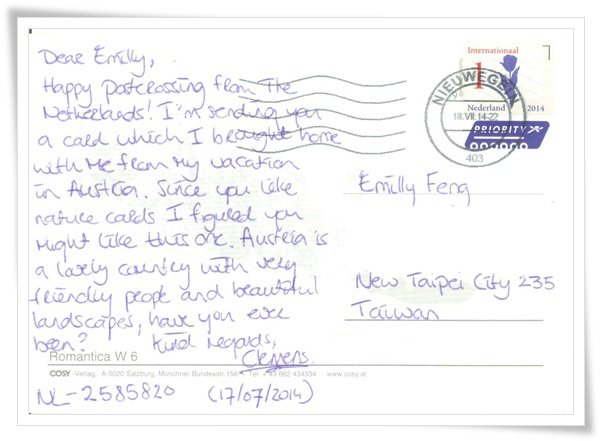 Dear Emilly,
Happy Postcrossing from The
Netherlands! I'm sending you
a card which I brought home
with me from my vacation
in Austria. Since you like
nature cards I figured you
might like this one. Austria is
a lovely country with very
friendly people and beautiful
landscapes, have you ever
been?
Kind regards,
Clemens.
Romantica W 6
COSY-Verlag, A-5020 Salzburg, Münchner Bundesstr. 156 - Tel. +43 662 434334 www.cosy.at
NL-2585820 (17/07/2014)
Internationaal
1
Nederland 2014
NIEUWEGEIN
18.VII.14-22
403
PRIORITY
Emilly Feng
New Taipei City 235
Taiwan